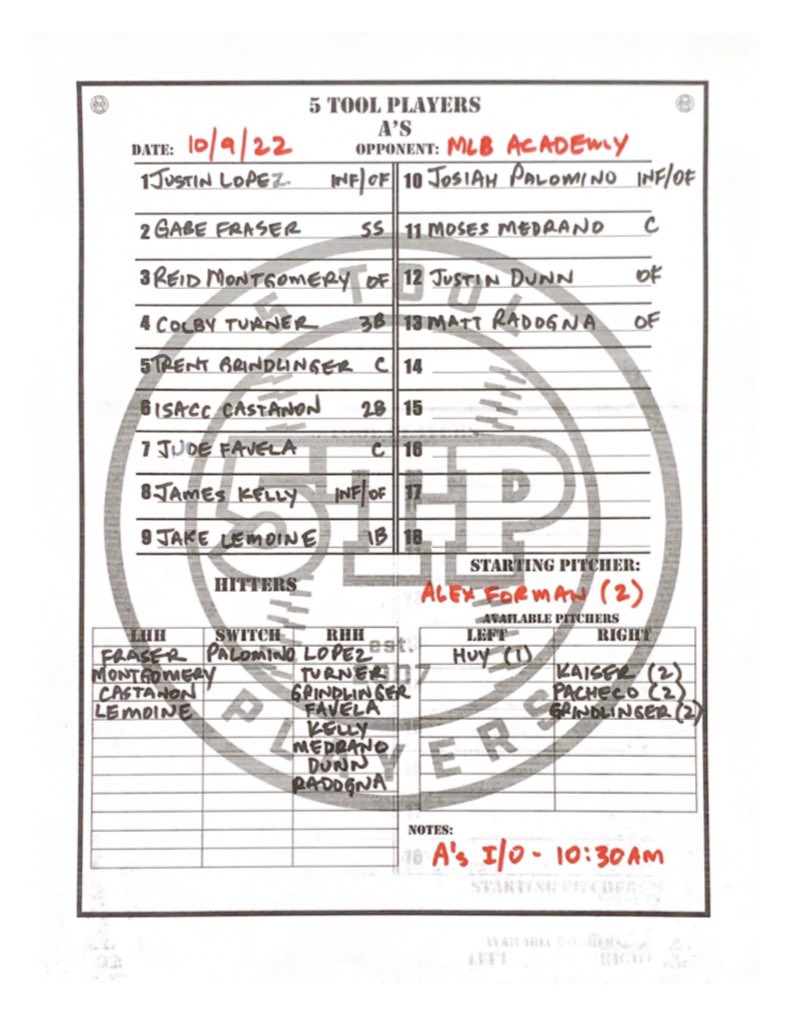 5 TOOL PLAYERS
A'S
DATE: 10/9/22 OPPONENT: MLB ACADEMY
1 JUSTIN LOPEZ INF/OF
2 GABE FRASER SS
3 REID MONTGOMERY OF
4 COLBY TURNER 3B
5 TRENT GRINDLINGER C
6 ISACC CASTANON 2B
7 JUDE FAVELA C
8 JAMES KELLY INF/OF
9 JAKE LEMOINE 1B
10 JOSIAH PALOMINO INF/OF
11 MOSES MEDRANO C
12 JUSTIN DUNN OF
13 MATT RADOGNA OF
14
15
16
17
18
5 TOOL
5TP
est.
2007
PLAYERS
HITTERS
LHH SWITCH RHH
FRASER PALOMINO LOPEZ
MONTGOMERY TURNER
CASTANON GRINDLINGER
LEMOINE FAVELA
KELLY
MEDRANO
DUNN
RADOGNA
STARTING PITCHER:
ALEX FORMAN (2)
AVAILABLE PITCHERS
LEFT RIGHT
HUY (1)
KAISER (2)
PACHECO (2)
GRINDLINGER (2)
NOTES:
A's I/O - 10:30AM
18
STARTING PITCHER:
AVAILABLE PITCHERS
LEFT RIGHT